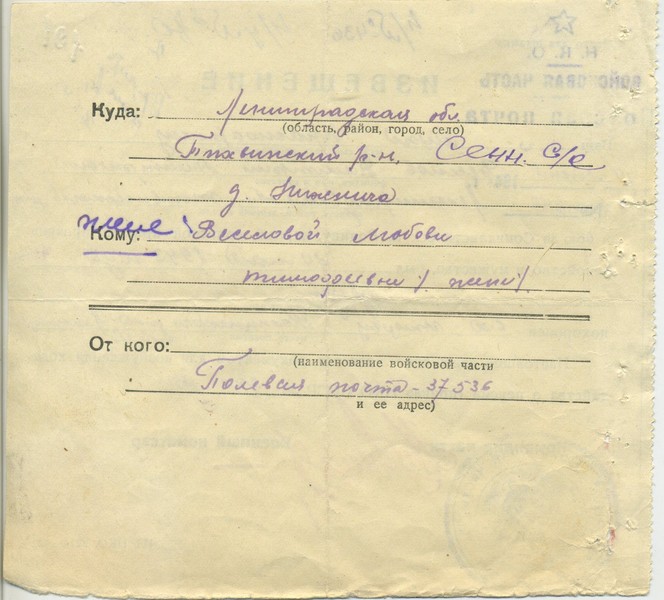 Куда: Ленинградская обл.
(область, район, город, село)
Тихвинский р-н, Сенн. С/с
д.
жене
Кому: Веселовой Любови
Тимофеевни (жене)
От кого:
(наименование войсковой части
Полевая почта - 37536
и ее адрес)